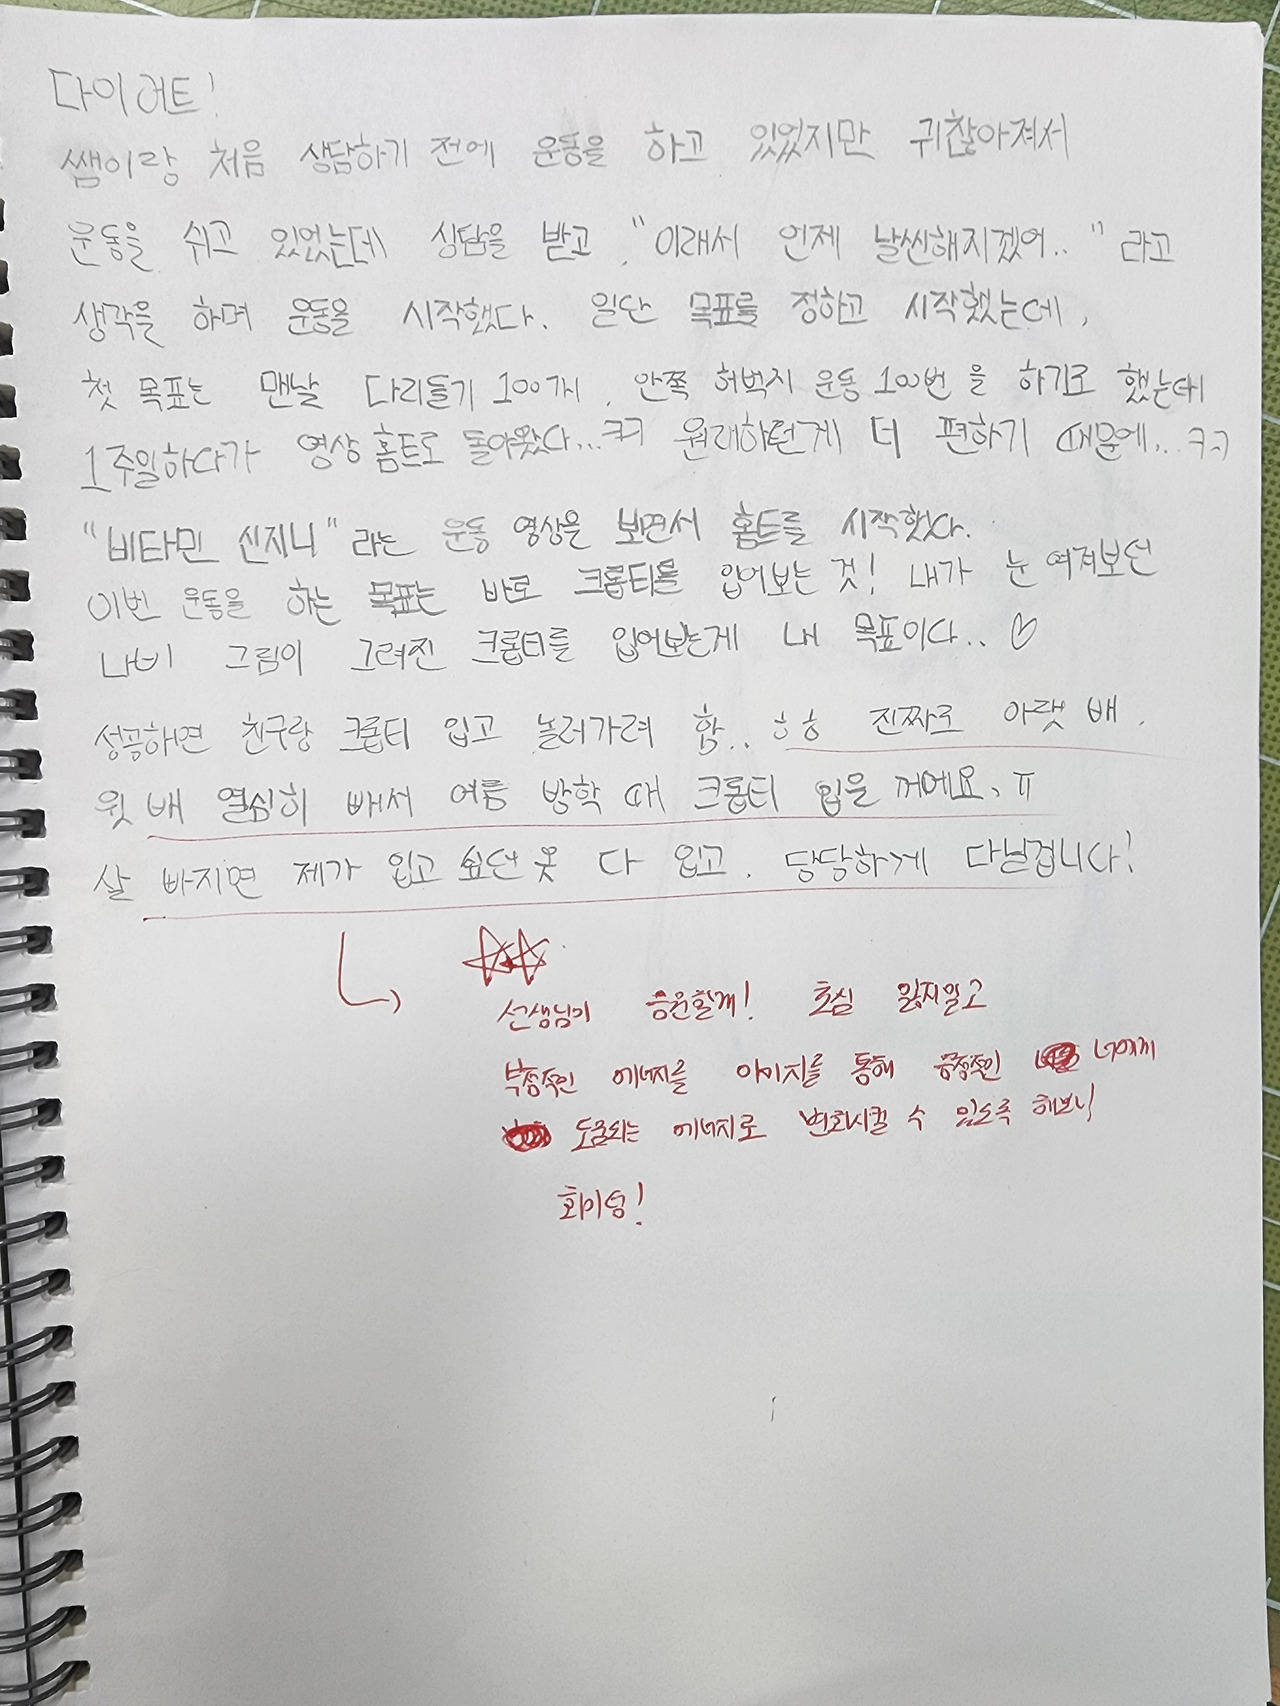 다이어트!
쌤이랑 처음 상담하기 전에 운동을 하고 있었지만 귀찮아져서
운동을 쉬고 있었는데 상담을 받고, "이래서 언제 날씬해지겠어.." 라고
생각을 하며 운동을 시작했다. 일단 목표를 정하고 시작했는데,
첫 목표는 맨날 다리들기 100개, 안쪽 허벅지 운동 100번 을 하기로 했는데
1주일하다가 영상 홈트로 돌아왔다...ㅋㅋ 원래하던게 더 편하기 때문에...ㅋㅋ
"비타민 신지니" 라는 운동 영상을 보면서 홈트를 시작했다.
이번 운동을 하는 목표는 바로 크롭티를 입어보는 것! 내가 눈 여겨보던
나비 그림이 그려진 크롭티를 입어보는게 내 목표이다..♡
성공하면 친구랑 크롭티 입고 놀러가려 함.. ㅎㅎ 진짜로 아랫 배,
윗 배 열심히 빼서 여름 방학 때 크롭티 입을 꺼에요, ㅠ
살 빠지면 제가 입고 싶던 옷 다 입고, 당당하게 다닐겁니다!
선생님이 응원할게! 초심 잃지말고
부정적인 에너지를 이미지를 통해 긍정적인 너에게
도움되는 에너지로 변화시킬 수 있도록 해보자
화이팅!